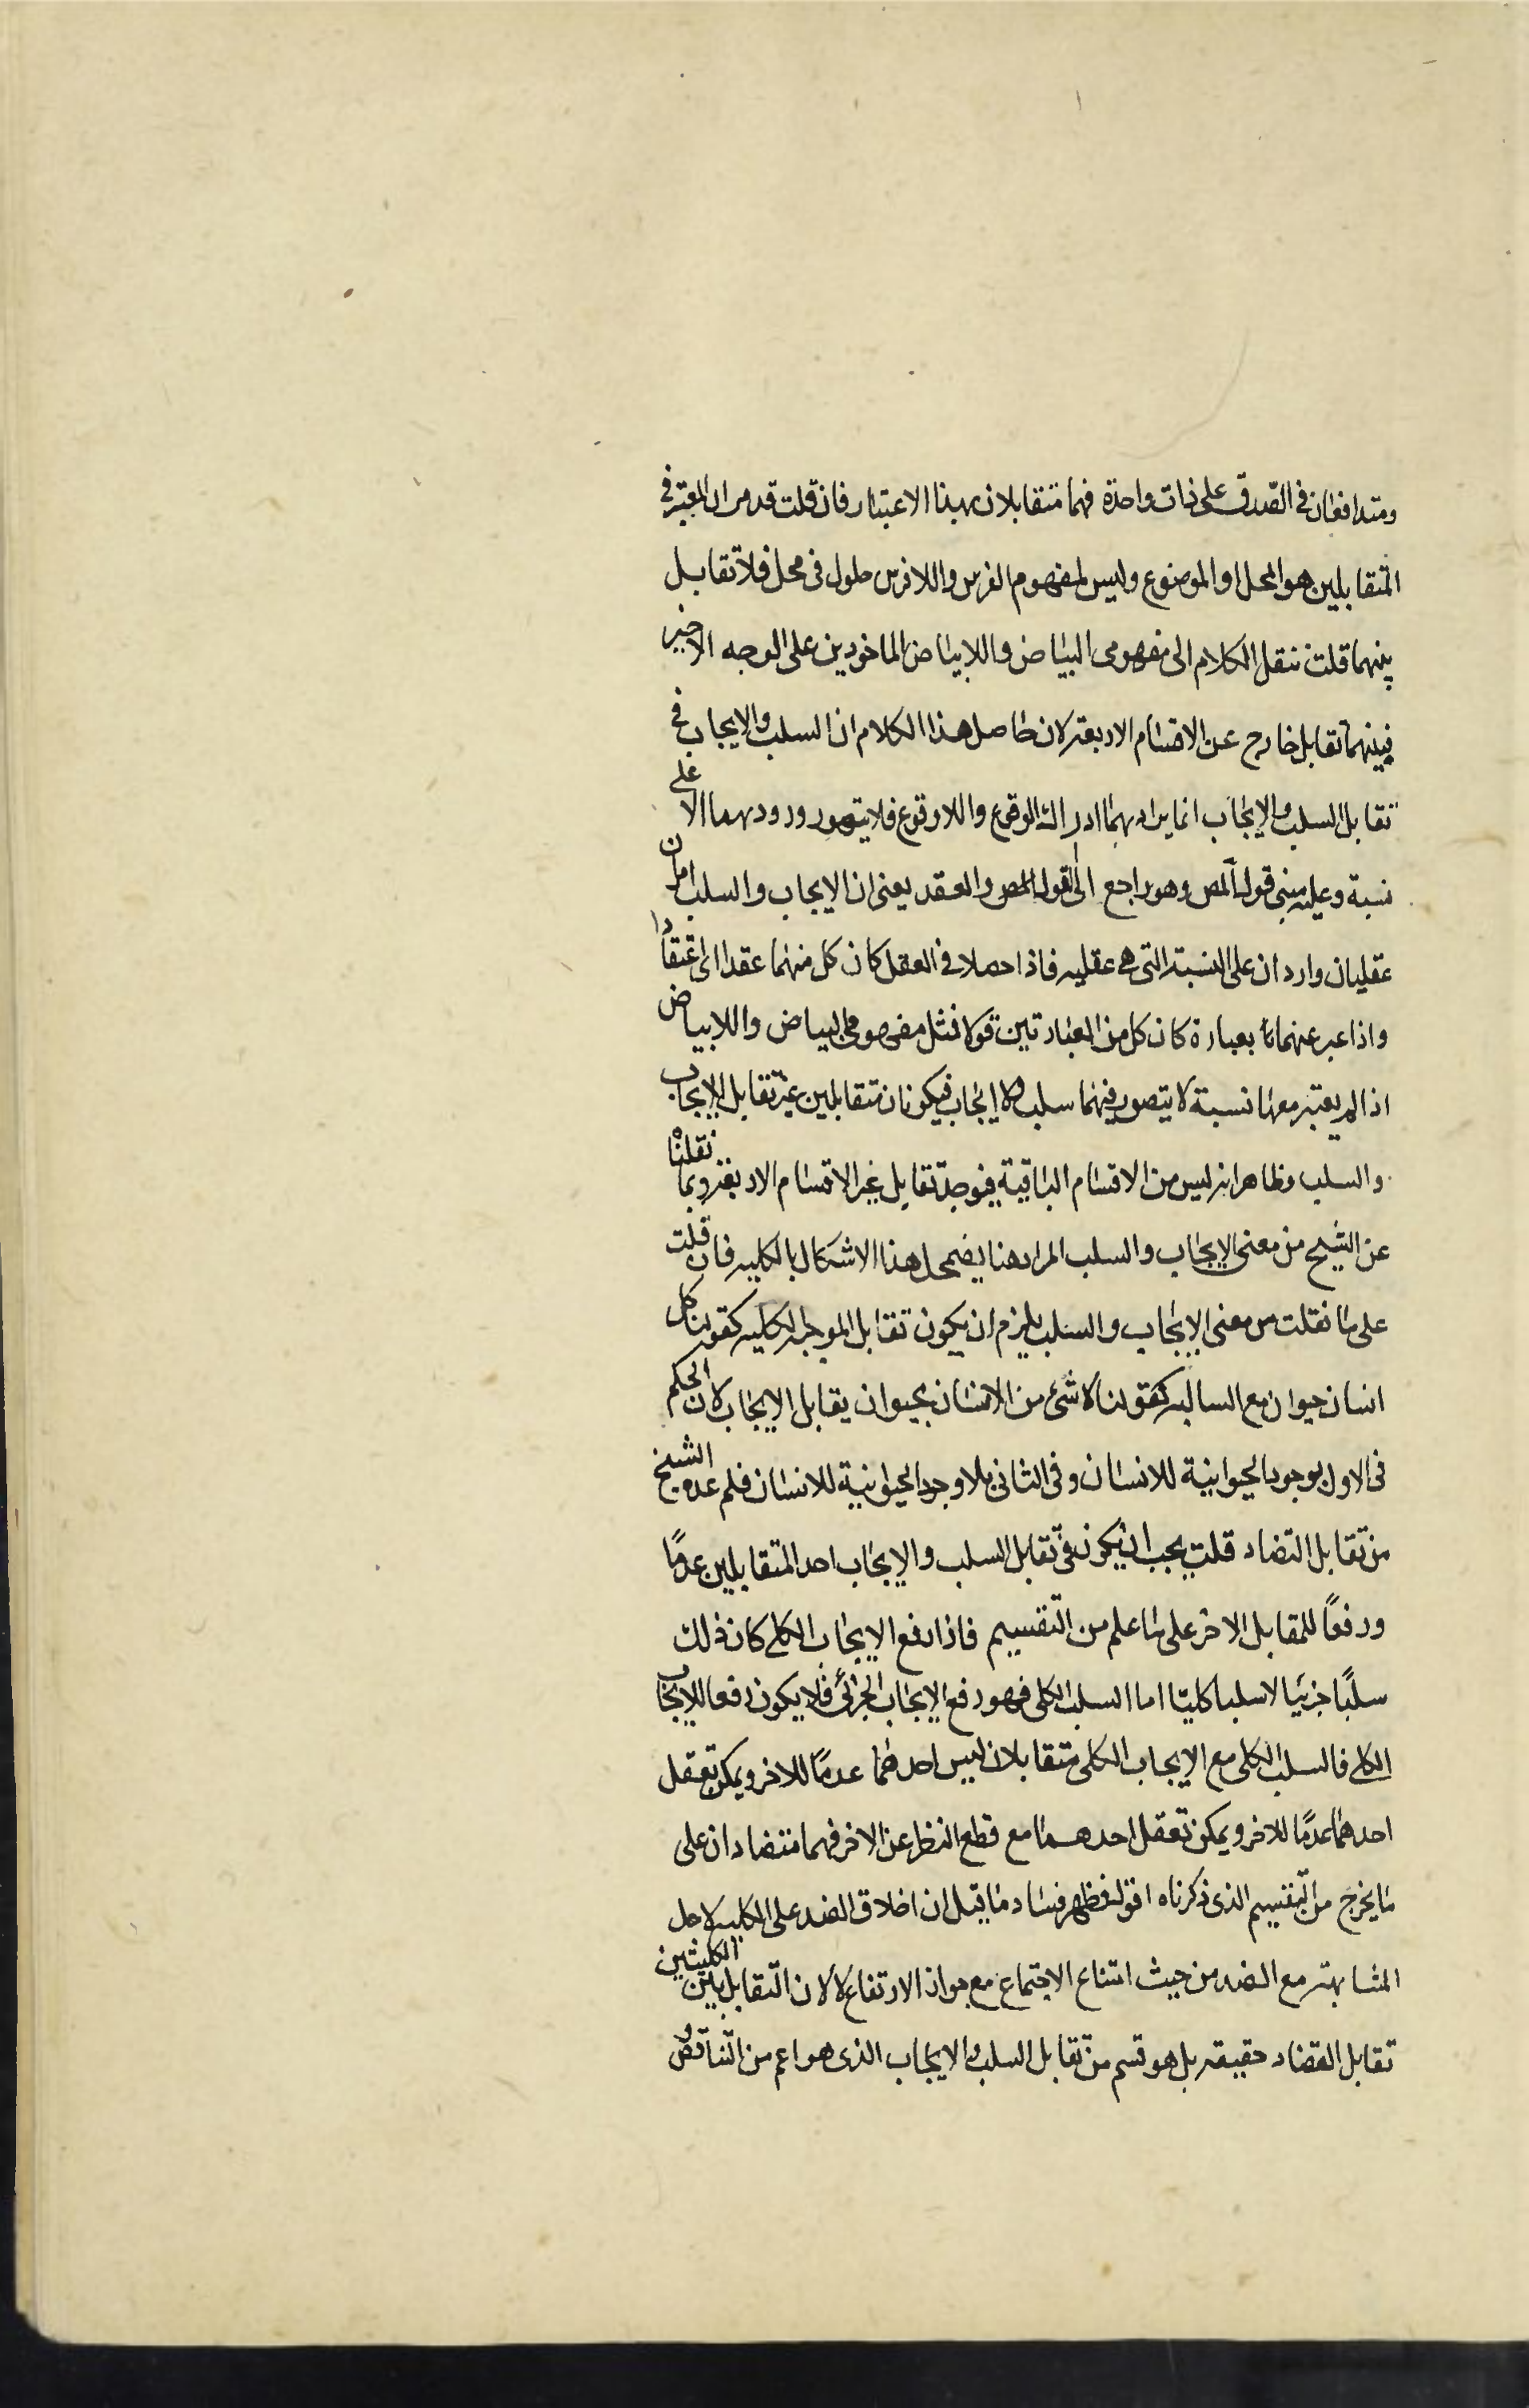 ومتدافعان فى الصدق على ذات واحدة فهما متقابلان بهذا الاعتبار فان قلت قد مر ان المعتبر فى
المتقابلين هو المحل او الموضوع وليس لمفهوم الفرس واللافرس حلول فى محل فلا تقابل
بينهما قلت ننقل الكلام الى مفهومى البياض واللابياض الماخوذين على الوجه الاخير
فبينهما تقابل خارج عن الاقسام الاربعة لان حاصل هذا الكلام ان السلب والايجاب فى
تقابل السلب والايجاب انما يراد بهما ادراك الوقوع واللاوقوع فلا يتصور ورودهما الا على
نسبة وعليه مبنى قول المص وهو راجع الى القول المص والعقد يعنى ان الايجاب والسلب امران
عقليان واردان على النسبة التى هى عقليه فاذا حصلا فى العقل كان كل منهما عقدا اى اعتقادا
واذا عبر عنهما بعبارة كان كل من العبارتين قولا فمثل مفهومى البياض واللابياض
اذا لم يعتبر معهما نسبة لا يتصور فيهما سلب ولا ايجاب فيكونان متقابلين غير تقابل الايجاب
والسلب وظاهر انه ليس من الاقسام الباقية فيوجد تقابل غير الاقسام الاربعة وبما نقلنا
عن الشيخ من معنى الايجاب والسلب المراد هنا يضمحل هذا الاشكال بالكليه فان قلت
على ما نقلت من معنى الايجاب والسلب يلزم ان يكون تقابل الموجبه الكليه كقولنا كل
انسان حيوان مع السالبه كقولنا لا شئ من الانسان بحيوان يقابل الايجاب لان الحكم
فى الاول بوجود الحيوانية للانسان وفى الثانى بلا وجود الحيوانية للانسان فلم عده الشيخ
من تقابل التضاد قلت يجب ان يكون فى تقابل السلب والايجاب احد المتقابلين عدمًا
ورفعًا للمقابل الاخر على ما علم من التقسيم فاذا رفع الايجاب الكلى كان ذلك
سلبًا جزئيا لا سلبا كليّا اما السلب الكلى فهو رفع الايجاب الجزئى فلا يكون رفعا للايجاب
الكلى فالسلب الكلى مع الايجاب الكلى متقابلان ليس احدهما عدمًا للاخر ويمكن تعقل
احدهما عدمًا للاخر ويمكن تعقل احدهما مع قطع النظر عن الاخر فهما متضادان على
ما يخرج من التقسيم الذى ذكرناه اقول فظهر فساد ما قيل ان اطلاق الضد على الكلية لاجل
المشابهة مع الضد من حيث امتناع الاجتماع مع جواز الارتفاع لا لان التقابل بين الكليتين
تقابل التضاد حقيقه بل هو قسم من تقابل السلب والايجاب الذى هو اعم من التناقض و